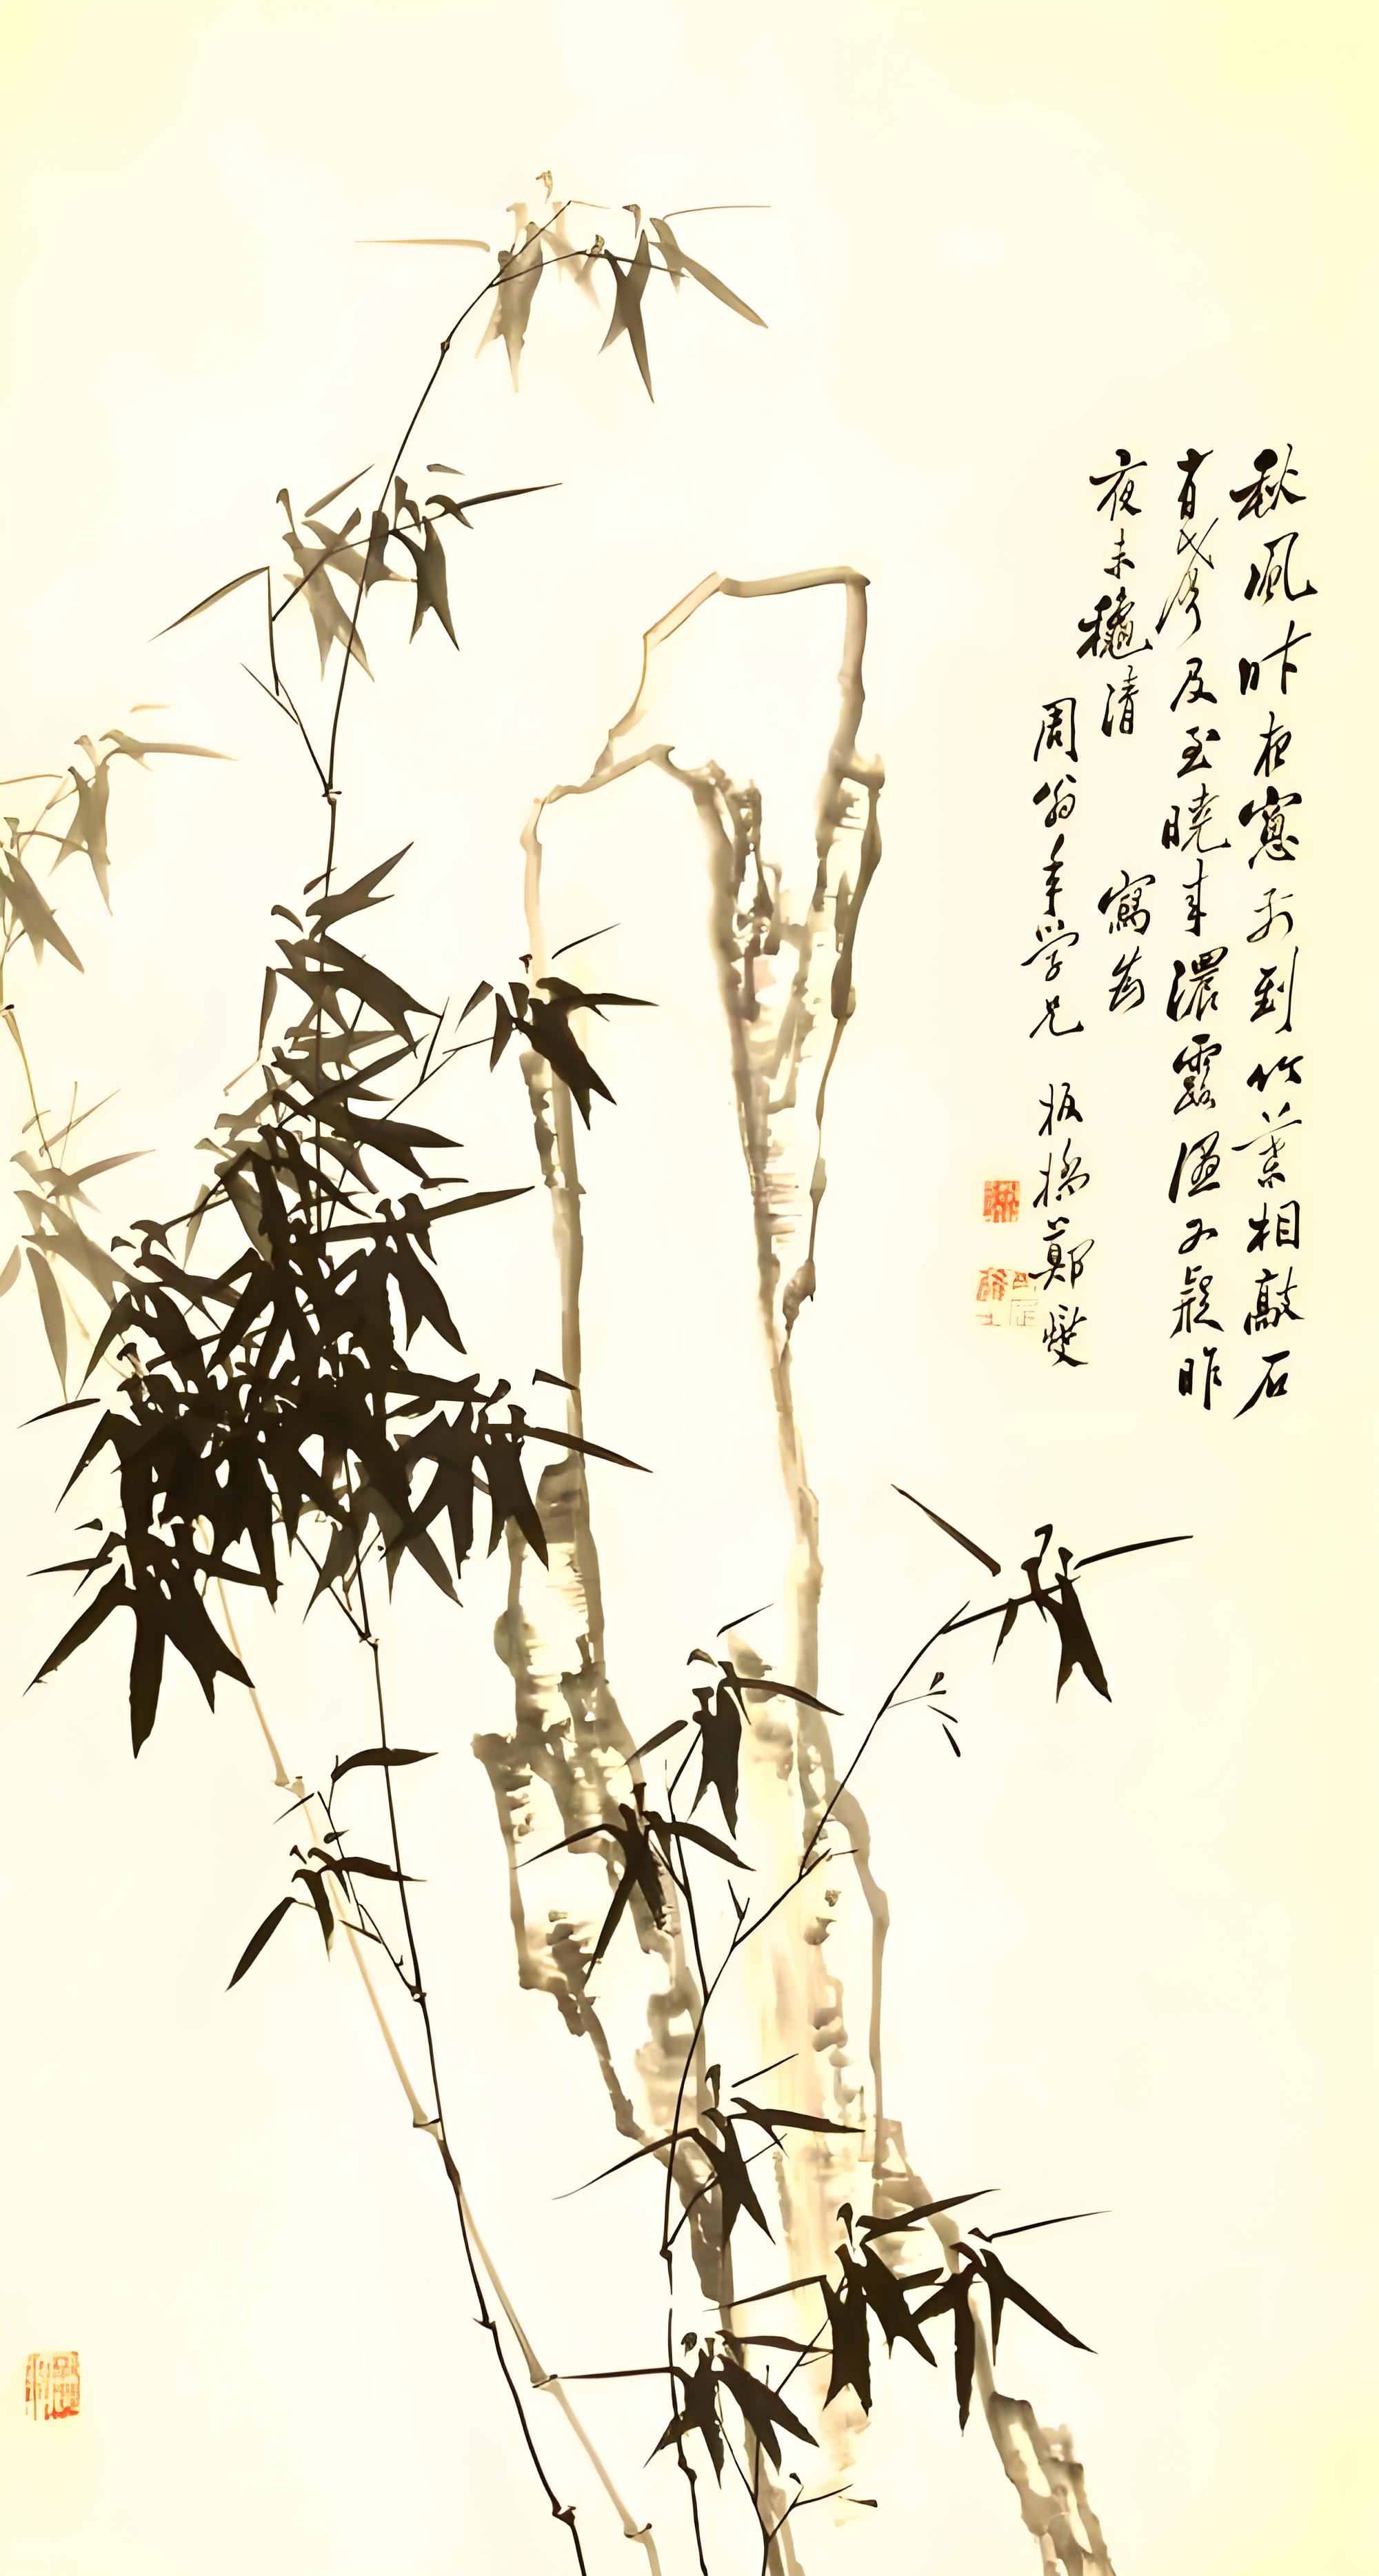 秋風昨夜窻前到竹葉相敲石
有聲及至曉來濃露溼又疑昨
夜未龝清 寫為
周翁年學兄 板橋鄭燮